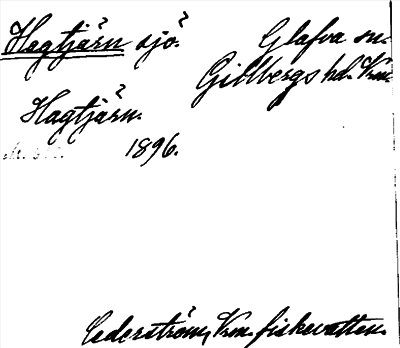 Hagtjärn sjö.
Glafva sn.
Gillbergs hd. Vrm.
Hagtjärn.
1896.
Cederström, Vrm. fiskevatten.